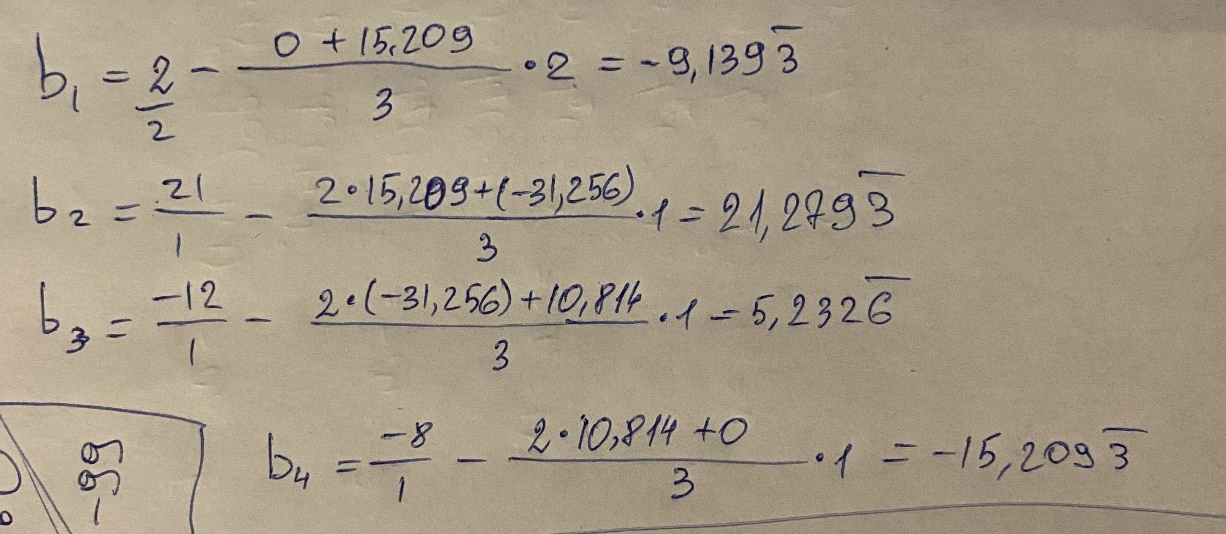 b₁ = 2/2 - (0 + 15,209)/3 · 2 = -9,139\overline{3}
b₂ = 21/1 - (2·15,209+(-31,256))/3 · 1 = 21,279\overline{3}
b₃ = -12/1 - (2·(-31,256)+10,814)/3 · 1 = 5,232\overline{6}
b₄ = -8/1 - (2·10,814+0)/3 · 1 = -15,209\overline{3}